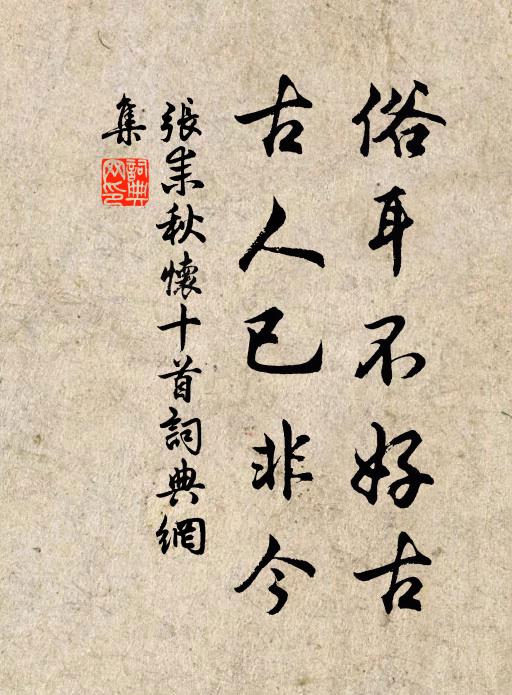 俗耳不好古
古人已非今
張耒秋懷十首詞典網
集
詞典網印